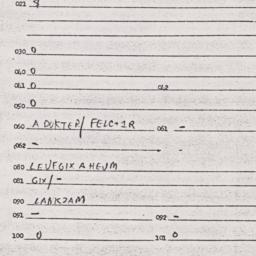 022 8
030 0
040 0
041 0 042
050 0
060 A DUKTER/ FELC+1R 061 -
062 -
080 LEUFGIX A HEUM
081 GIX/-
090 LANKJAM
091 - 092 -
100 0 101 0